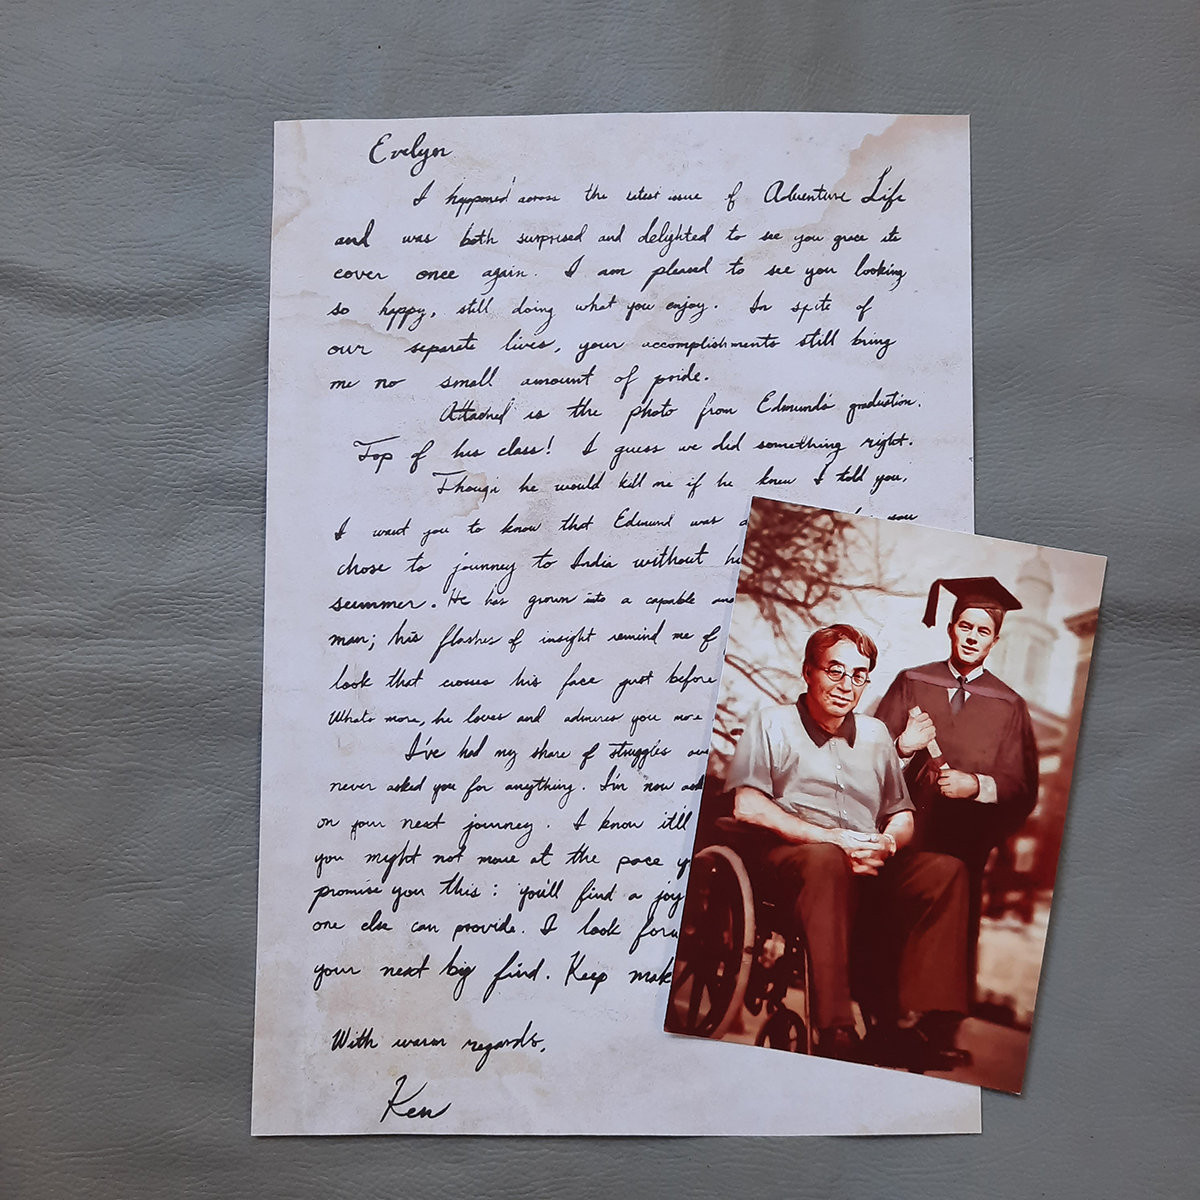 Evelyn
I happened across the latest issue of Adventure Life
and was both surprised and delighted to see you grace its
cover once again. I am pleased to see you looking
so happy, still doing what you enjoy. In spite of
our separate lives, your accomplishments still bring
me no small amount of pride.
Attached is the photo from Edmund's graduation.
Top of his class! I guess we did something right.
Though he would kill me if he knew I told you,
I want you to know that Edmund was you
chose to journey to India without
summer. He has grown into a capable
man; his flashes of insight remind me of
look that crosses his face just before
What's more, he loves and admires you more
I've had my share of struggles
never asked you for anything. I'm now
on your next journey. I know it'll
you might not move at the pace
promise you this: you'll find a joy
one else can provide. I look
your next big find. Keep
With warm regards,
Ken